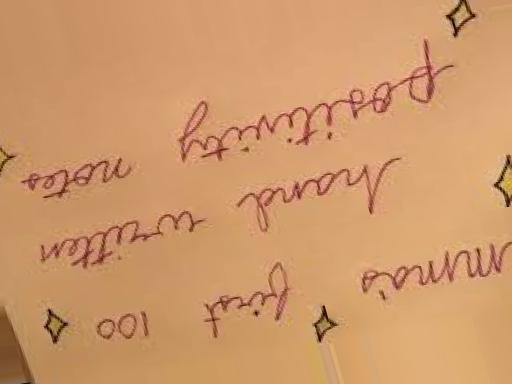 Mima's first 100
hand written
positivity notes